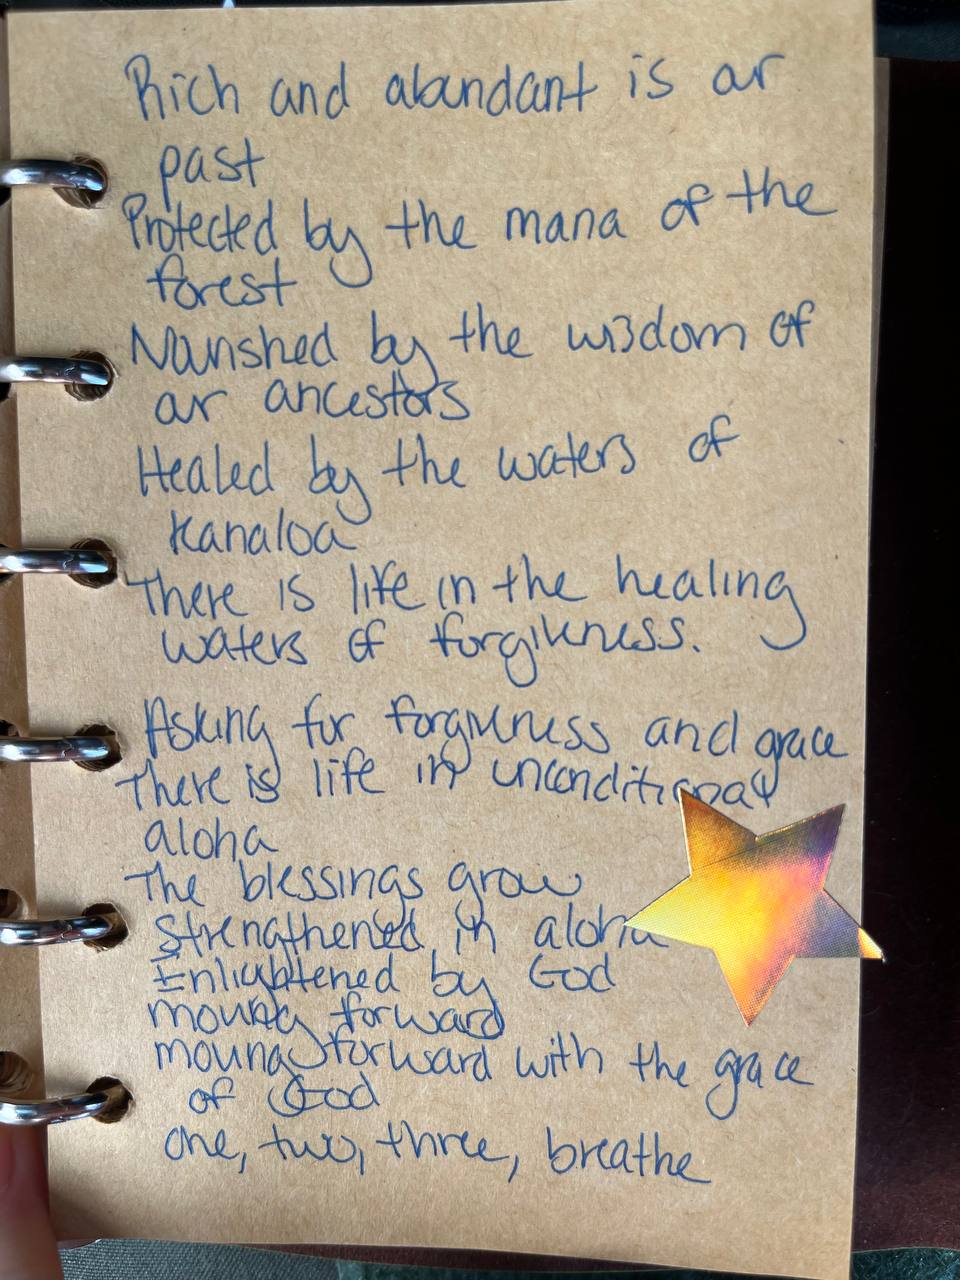 Rich and abundant is our
past
Protected by the mana of the
forest
Nourished by the wisdom of
our ancestors
Healed by the waters of
Kanaloa
There is life in the healing
waters of forgiveness.
Asking for forgiveness and grace
There is life in unconditional
aloha
The blessings grow
Strengthened in aloha
Enlightened by God
moving forward
moving forward with the grace
of God
one, two, three, breathe